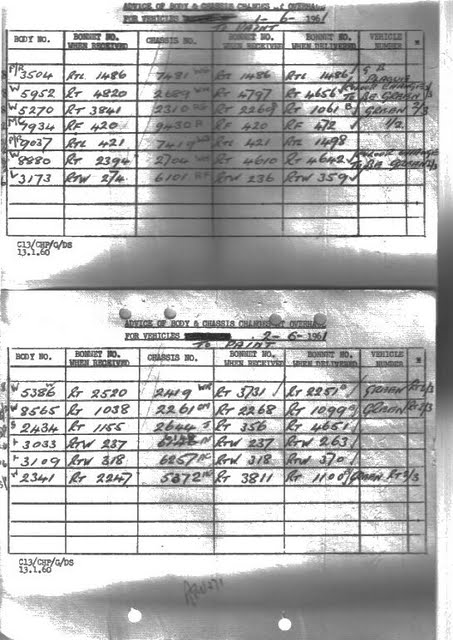 ADVICE OF BODY & CHASSIS CHANGES AT OVERHAUL
FOR VEHICLES 1-6-1961
TO PAINT
BODY NO. BONNET NO. WHEN RECEIVED CHASSIS NO. BONNET NO. WHEN RECEIVED BONNET NO. WHEN DELIVERED VEHICLE NUMBER
P/R 3504 RTL 1486 7481 RTL 1486 RTL 1486 G B
W 5952 RT 4820 2689 RT 4797 RT 4656 TO BE GREEN
W 5270 RT 3841 2310 RT 2260 RT 1061 GREEN 2/3
MC 7934 RF 420 9430 RF 420 RF 472 1/2
P/R 9037 RTL 421 7419 RTL 421 RTL 1498
W 8880 RT 2394 2704 RT 4610 RT 4642
L 3173 RTW 274 6101 RF RTW 236 RTW 359
C13/CHP/G/DS
13.1.60
ADVICE OF BODY & CHASSIS CHANGES AT OVERHAUL
FOR VEHICLES 2-6-1961
TO PAINT
BODY NO. BONNET NO. WHEN RECEIVED CHASSIS NO. BONNET NO. WHEN RECEIVED BONNET NO. WHEN DELIVERED VEHICLE NUMBER
W 5386 RT 2520 2419 WR RT 3731 RT 2251 GREEN RT 2/3
W 8565 RT 1038 2261 RT 2268 RT 1099 GREEN RT 2/3
S 2434 RT 1155 2644 S RT 356 RT 4651
L 3033 RTW 237 RTW 237 RTW 263
L 3109 RTW 318 6257 RTW 318 RTW 370
W 2341 RT 2247 5372 RT 3811 RT 1100 GREEN RT 2/3
C13/CHP/G/DS
13.1.60